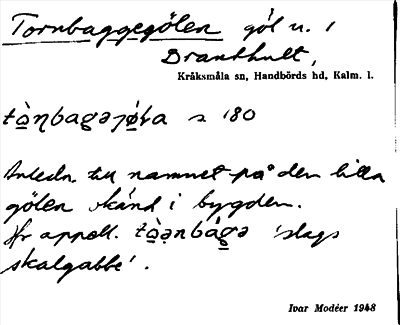 Tornbaggegölen göl n. i
Dranthult,
Kråksmåla sn, Handbörds hd, Kalm. l.
s 180
Anledn. till namnet på den lilla
gölen okänd i bygden.
Jfr appell. 'slags
skalgabbe'.
Ivar Modéer 1948